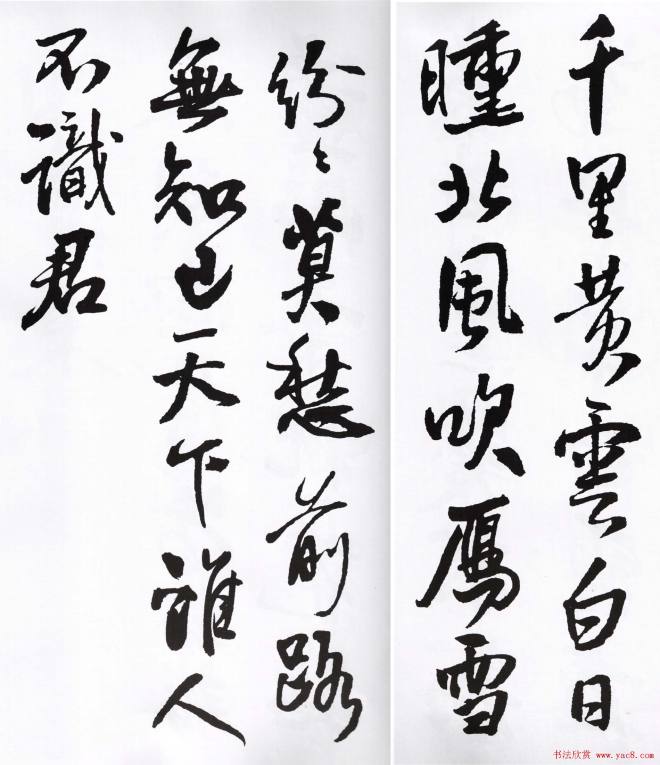 千里黄雲白日
曛北風吹雁雪
紛〻莫愁前路
無知己天下誰人
不識君
书法欣赏 www.yac8.com